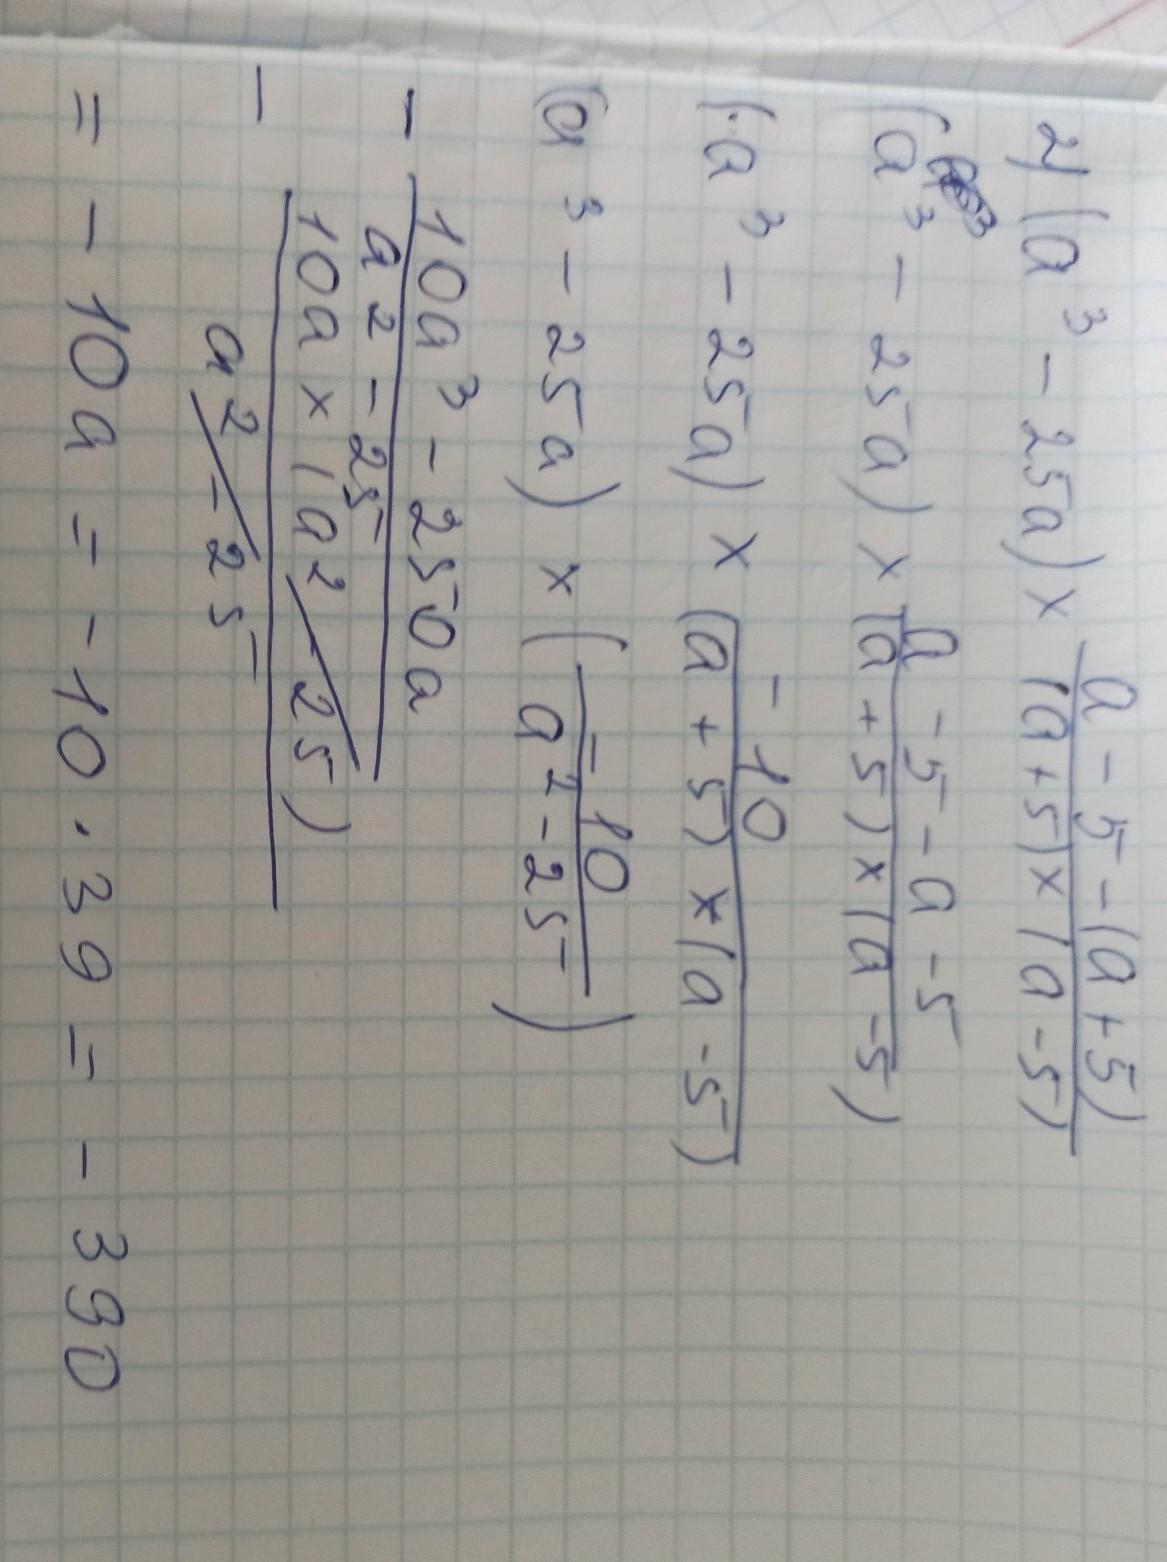 2) (a³ - 25a) × a - 5 - (a + 5)
(a + 5) × (a - 5)
(a³ - 25a) × a - 5 - a - 5
(a + 5) × (a - 5)
(a³ - 25a) × - 10
(a + 5) × (a - 5)
(a³ - 25a) × ( - 10
a² - 25 )
- 10a³ - 250a
a² - 25
- 10a × (a² - 25)
a² - 25
= - 10a = - 10 · 39 = - 390